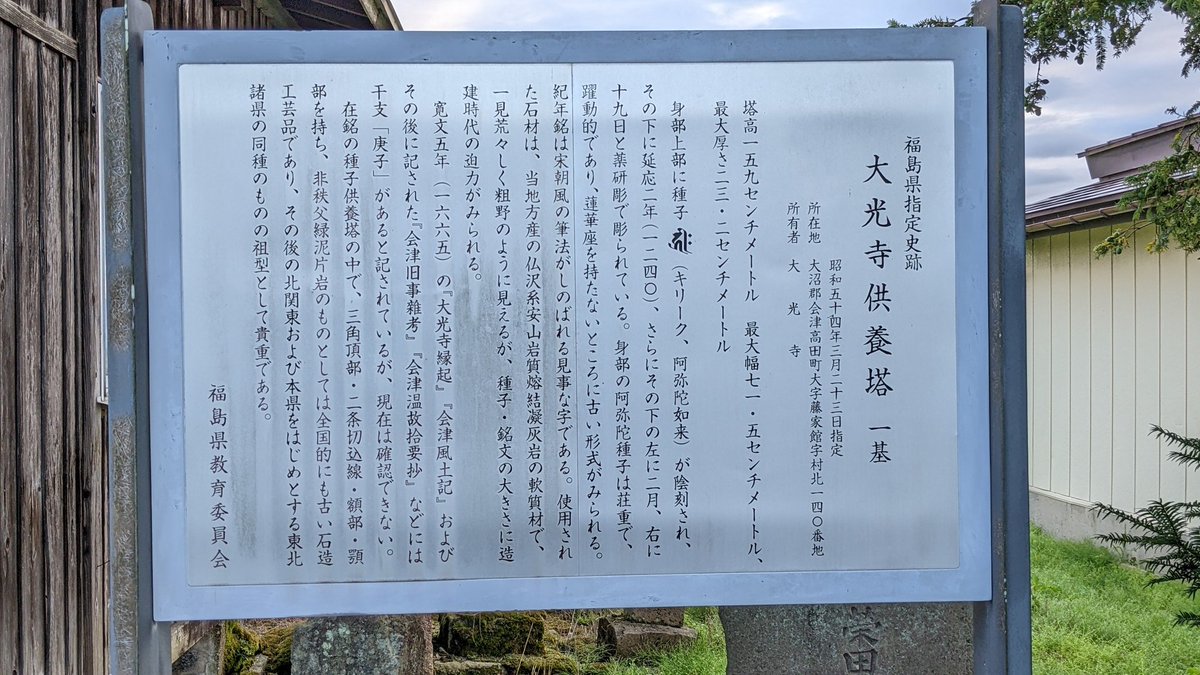 福島県指定史跡
大光寺供養塔 一基
昭和五十四年三月二十三日指定
所在地 大沼郡会津高田町大字藤家舘字村北一四〇番地
所有者 大光寺
塔高一五九センチメートル 最大幅七一・五センチメートル、
最大厚さ二三・二センチメートル
身部上部に種子（キリーク、阿弥陀如来）が陰刻され、
その下に延応二年（一二四〇）、さらにその下の左に二月、右に
十九日と薬研彫で彫られている。身部の阿弥陀種子は荘重で、
躍動的であり、蓮華座を持たないところに古い形式がみられる。
紀年銘は宋朝風の筆法がしのばれる見事な字である。使用され
た石材は、当地方産の仏沢系安山岩質熔結凝灰岩の軟質材で、
一見荒々しく粗野のように見えるが、種子・銘文の大きさに造
建時代の迫力がみられる。
寛文五年（一六六五）の『大光寺縁起』『会津風土記』および
その後に記された『会津旧事雑考』『会津温故拾要抄』などには
干支「庚子」があると記されているが、現在は確認できない。
在銘の種子供養塔の中で、三角頂部・二条切込線・額部・顎
部を持ち、非秩父緑泥片岩のものとしては全国的にも古い石造
工芸品であり、その後の北関東および本県をはじめとする東北
諸県の同種のものの祖型として貴重である。
福島県教育委員会
栄田